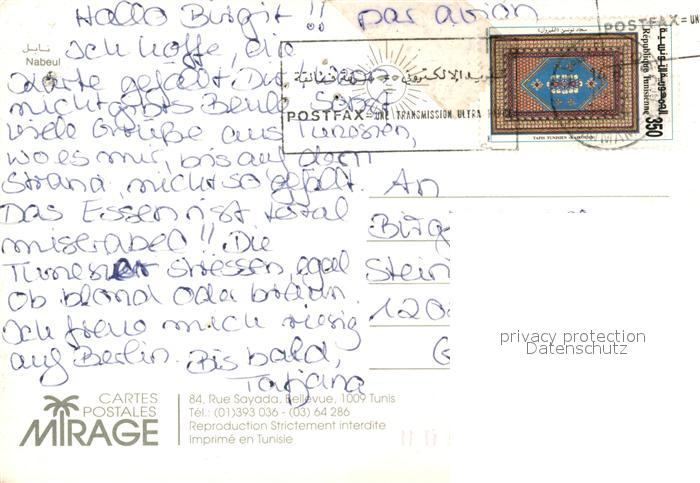 Hallo Birgit!! par avion
Ich hoffe die
Karte gefällt Dir
viele Grüße aus Tunesien,
wo es mir, bis auf dem
Strand, nicht so gefällt.
Das Essen ist total
miserabel!! Die
Tuneser stressen, egal
ob blond oda braun.
Ich freue mich riesig
auf Berlin. Bis bald,
Tatjana
نابل
Nabeul
POSTFAX = UNE TRANSMISSION ULTRA
POSTFAX = UN
République Tunisienne
350
TAPIS TUNISIEN
An
Birg
Stein
120
privacy protection
Datenschutz
CARTES
POSTALES
MIRAGE
84, Rue Sayada, Bellevue, 1009 Tunis
Tél.: (01)393 036 - (03) 64 286
Reproduction Strictement interdite
Imprimé en Tunisie